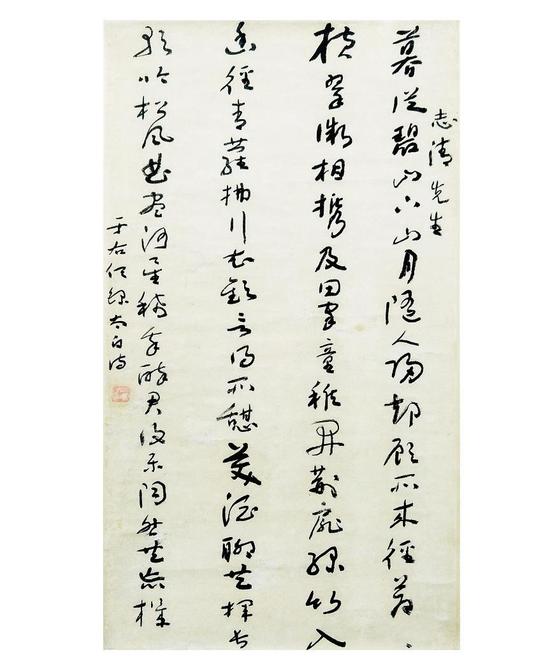 志清先生
暮從碧山下山月隨人歸卻顧所來徑蒼〻
橫翠微相攜及田家童稚開荊扉綠竹入
幽徑青蘿拂行衣歡言得所憩美酒聊共揮長
歌吟松風曲盡河星稀我醉君復樂陶然共忘機
于右任錄太白詩